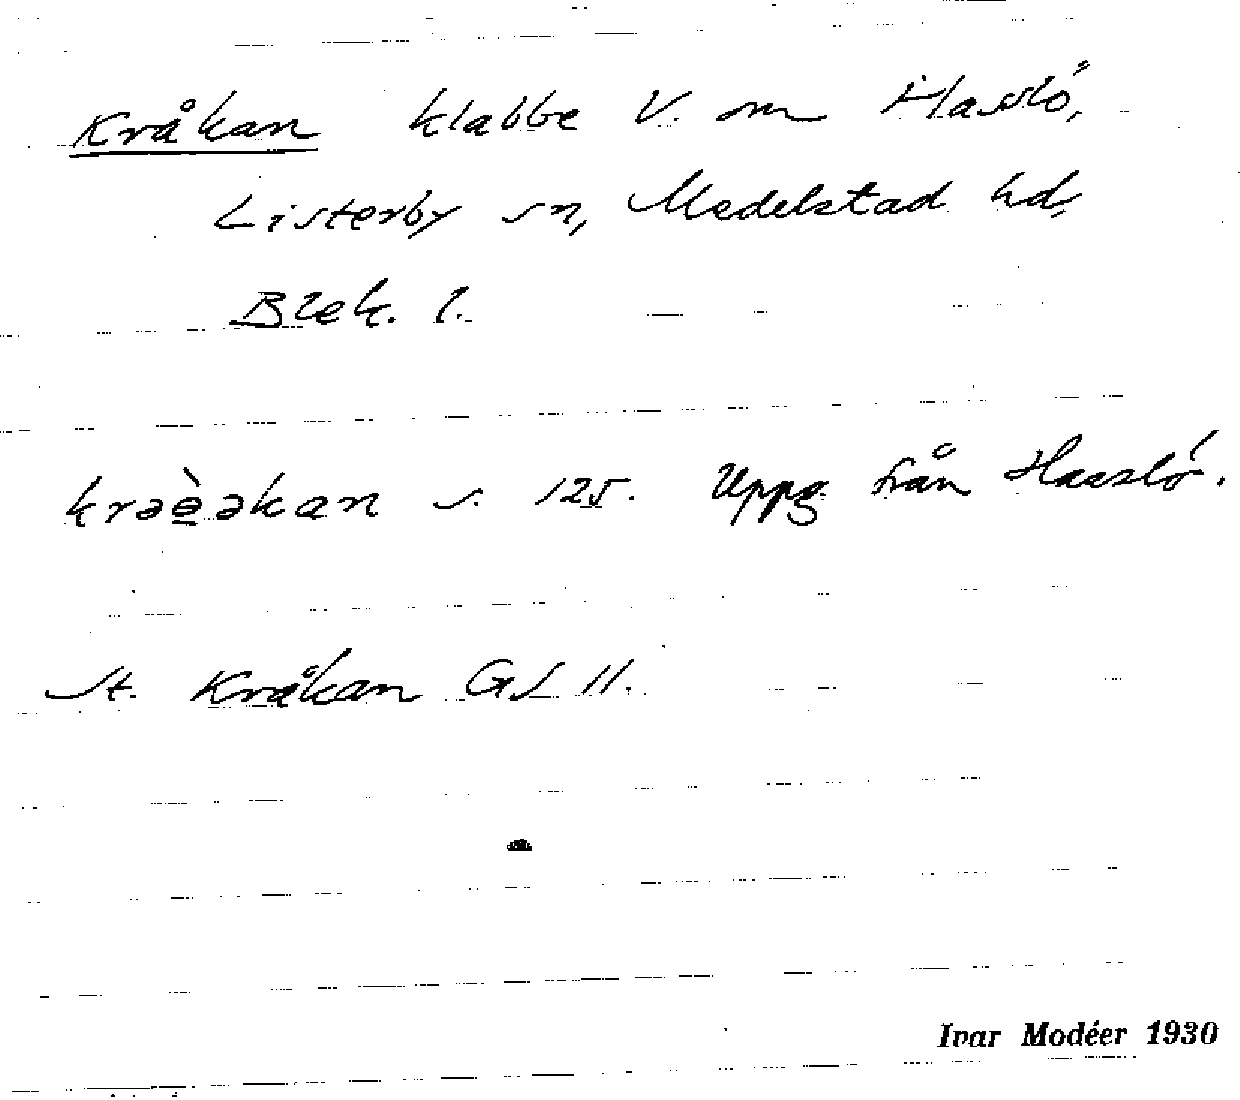 Kråkan klabbe V. om Hasslö,
Listerby sn, Medelstad hd,
Blek. l.
krəè̱əkan s. 125. Uppg. från Hasslö.
St. Kråkan GS 11.
Ivar Modéer 1930